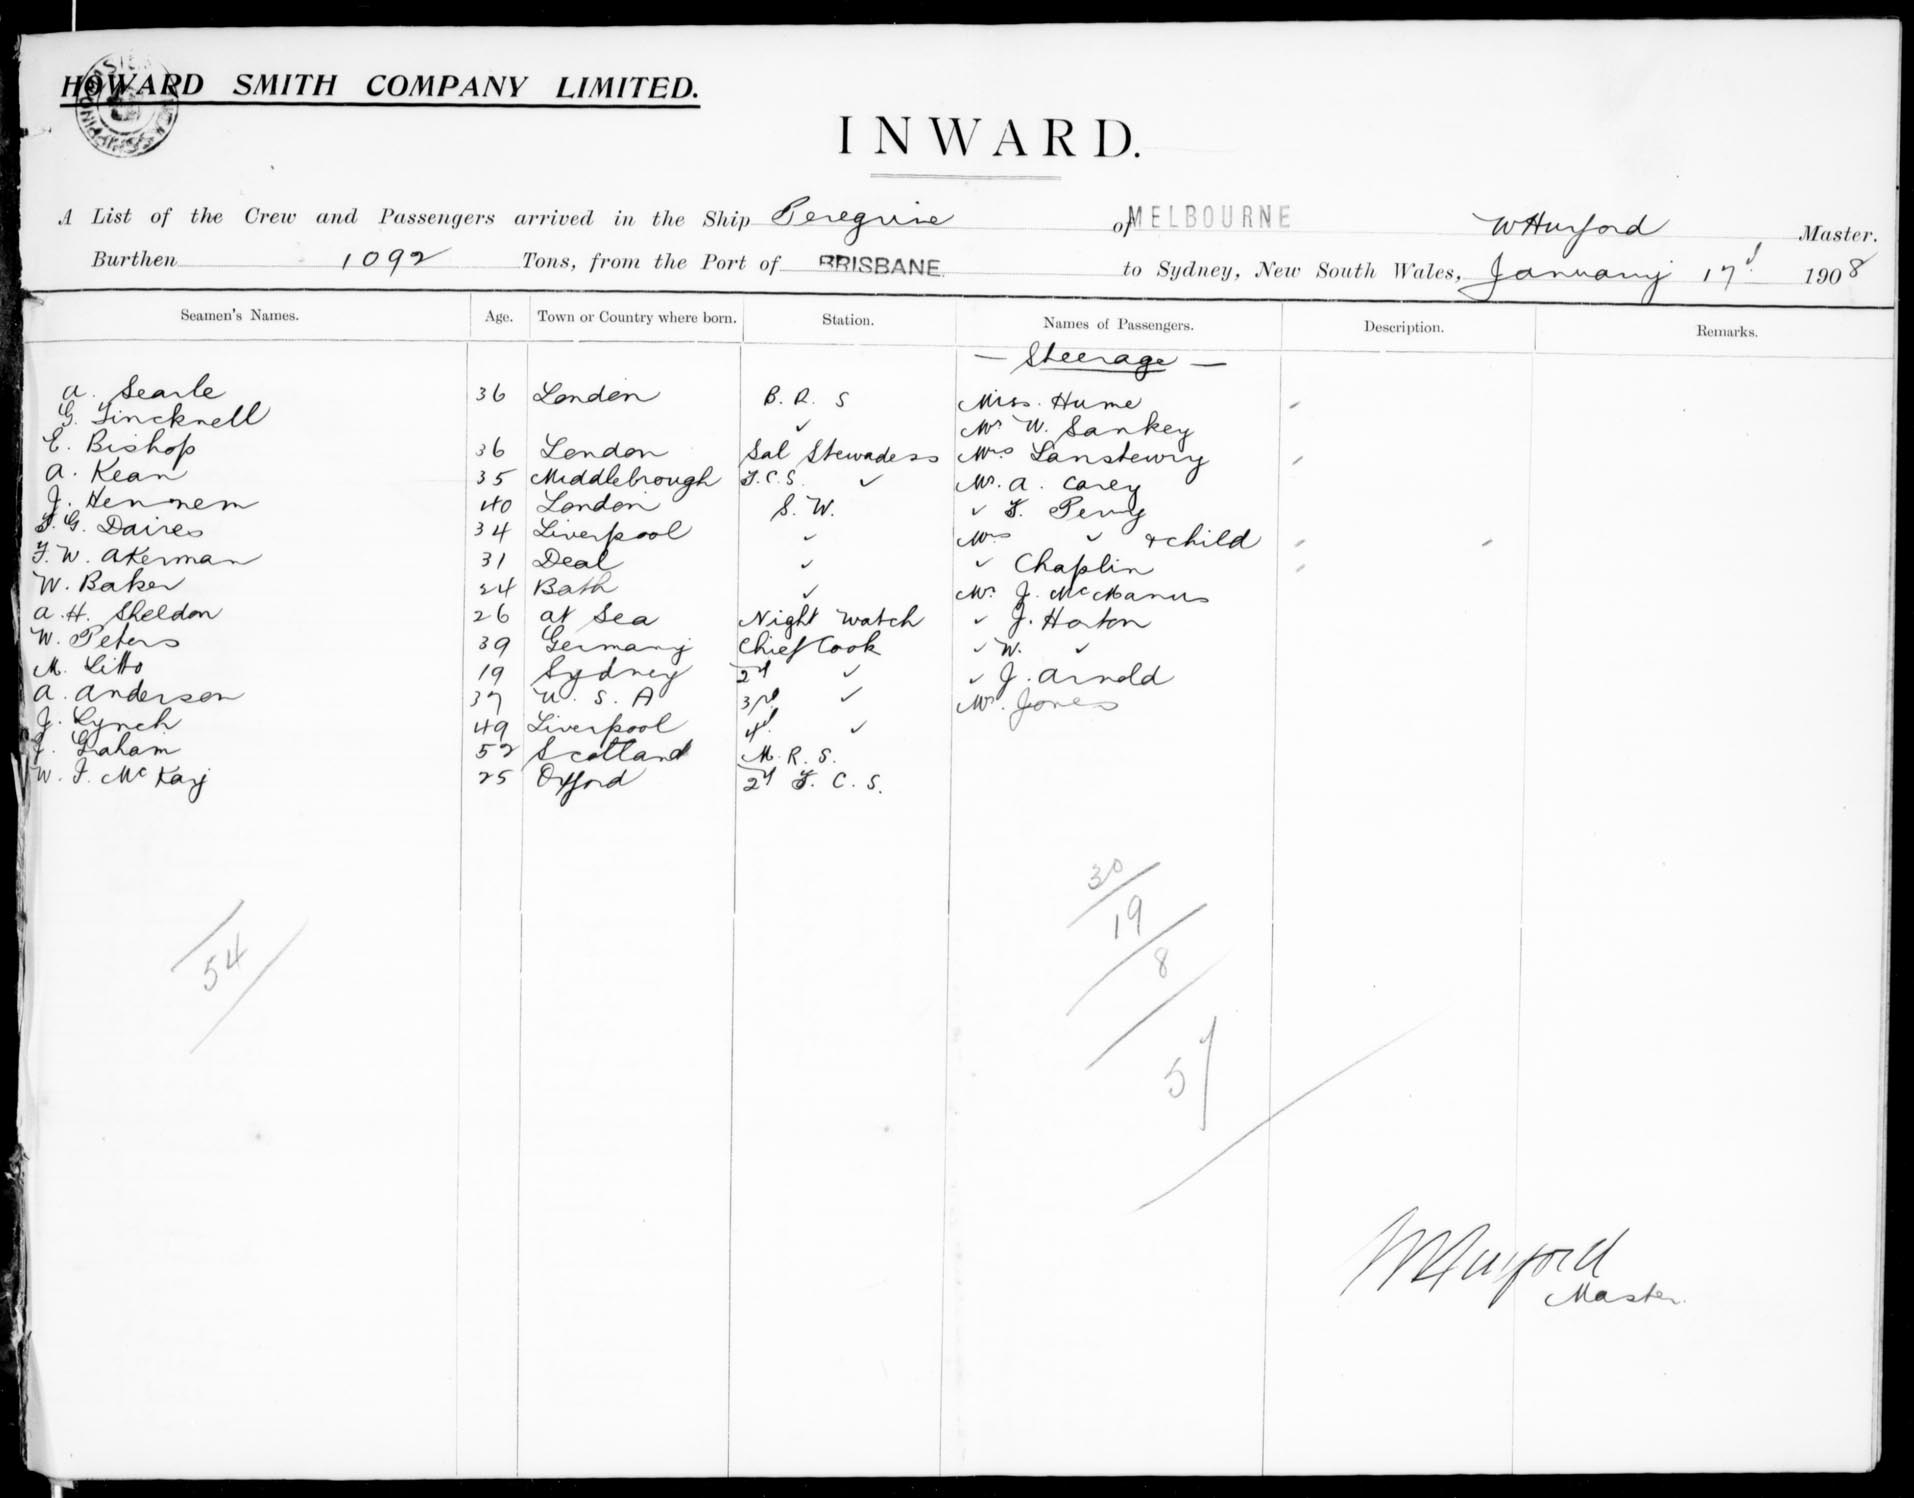 HOWARD SMITH COMPANY LIMITED.
INWARD.
A List of the Crew and Passengers arrived in the Ship Peregrine of MELBOURNE W Hurford Master.
Burthen 1092 Tons, from the Port of BRISBANE to Sydney, New South Wales, January 17th 1908
Seamen's Names. Age. Town or Country where born. Station. Names of Passengers. Description. Remarks.
— Steerage —
A. Searle 36 London B. R. S Miss. Hume
G. Tincknell ✓ Mr W. Sankey
E. Bishop 36 London Sal Stewadess Mrs
A. Kean 35 Middlebrough F.C.S. ✓ Mr. A. Carey
J. Hennem 40 London S. W. ✓ F. Perry
F. G. Daires 34 Liverpool ✓ Mrs ✓ + child
F. W. Akerman 31 Deal ✓ ✓ Chaplin
W. Baker 24 Bath ✓ Mr. J. McManus
A. H. Sheldon 26 at Sea Night Watch ✓ J. Horton
W. Peters 39 Germany Chief Cook ✓ W. ✓
M. Litto 19 Sydney 2d ✓ ✓ J. Arnold
A. Anderson 37 U. S. A 3rd ✓ Mr. Jones
J. Lynch 49 Liverpool 4th ✓
J. Graham 52 Scotland M. R. S.
W. F. McKay 25 Oxford 2d F. C. S.
30
19
54
8
57
W Hurford
Master.